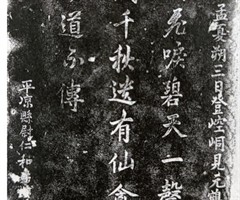 孟夏朔三日登崆峒見元
唳碧天一聲
千秋迷有仙禽
道不傳
平凉縣尉仁和